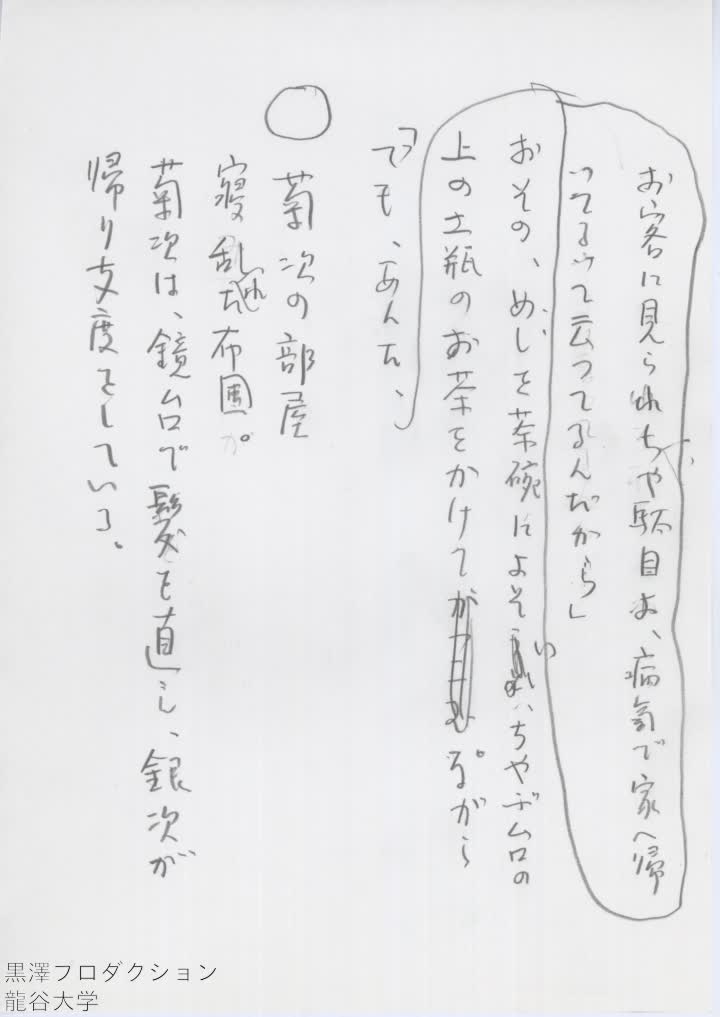 お客に見られちゃ駄目よ、病気で家へ帰
ってるって云ってるんだから」
おその、めしを茶碗によそい、ちゃぶ台の
上の土瓶のお茶をかけてながら
「でも、あんた、
○ 菊次の部屋
寝乱れた布団が。
菊次は、鏡台で髪を直し、銀次が
帰り支度をしている。
黒澤プロダクション
龍谷大学